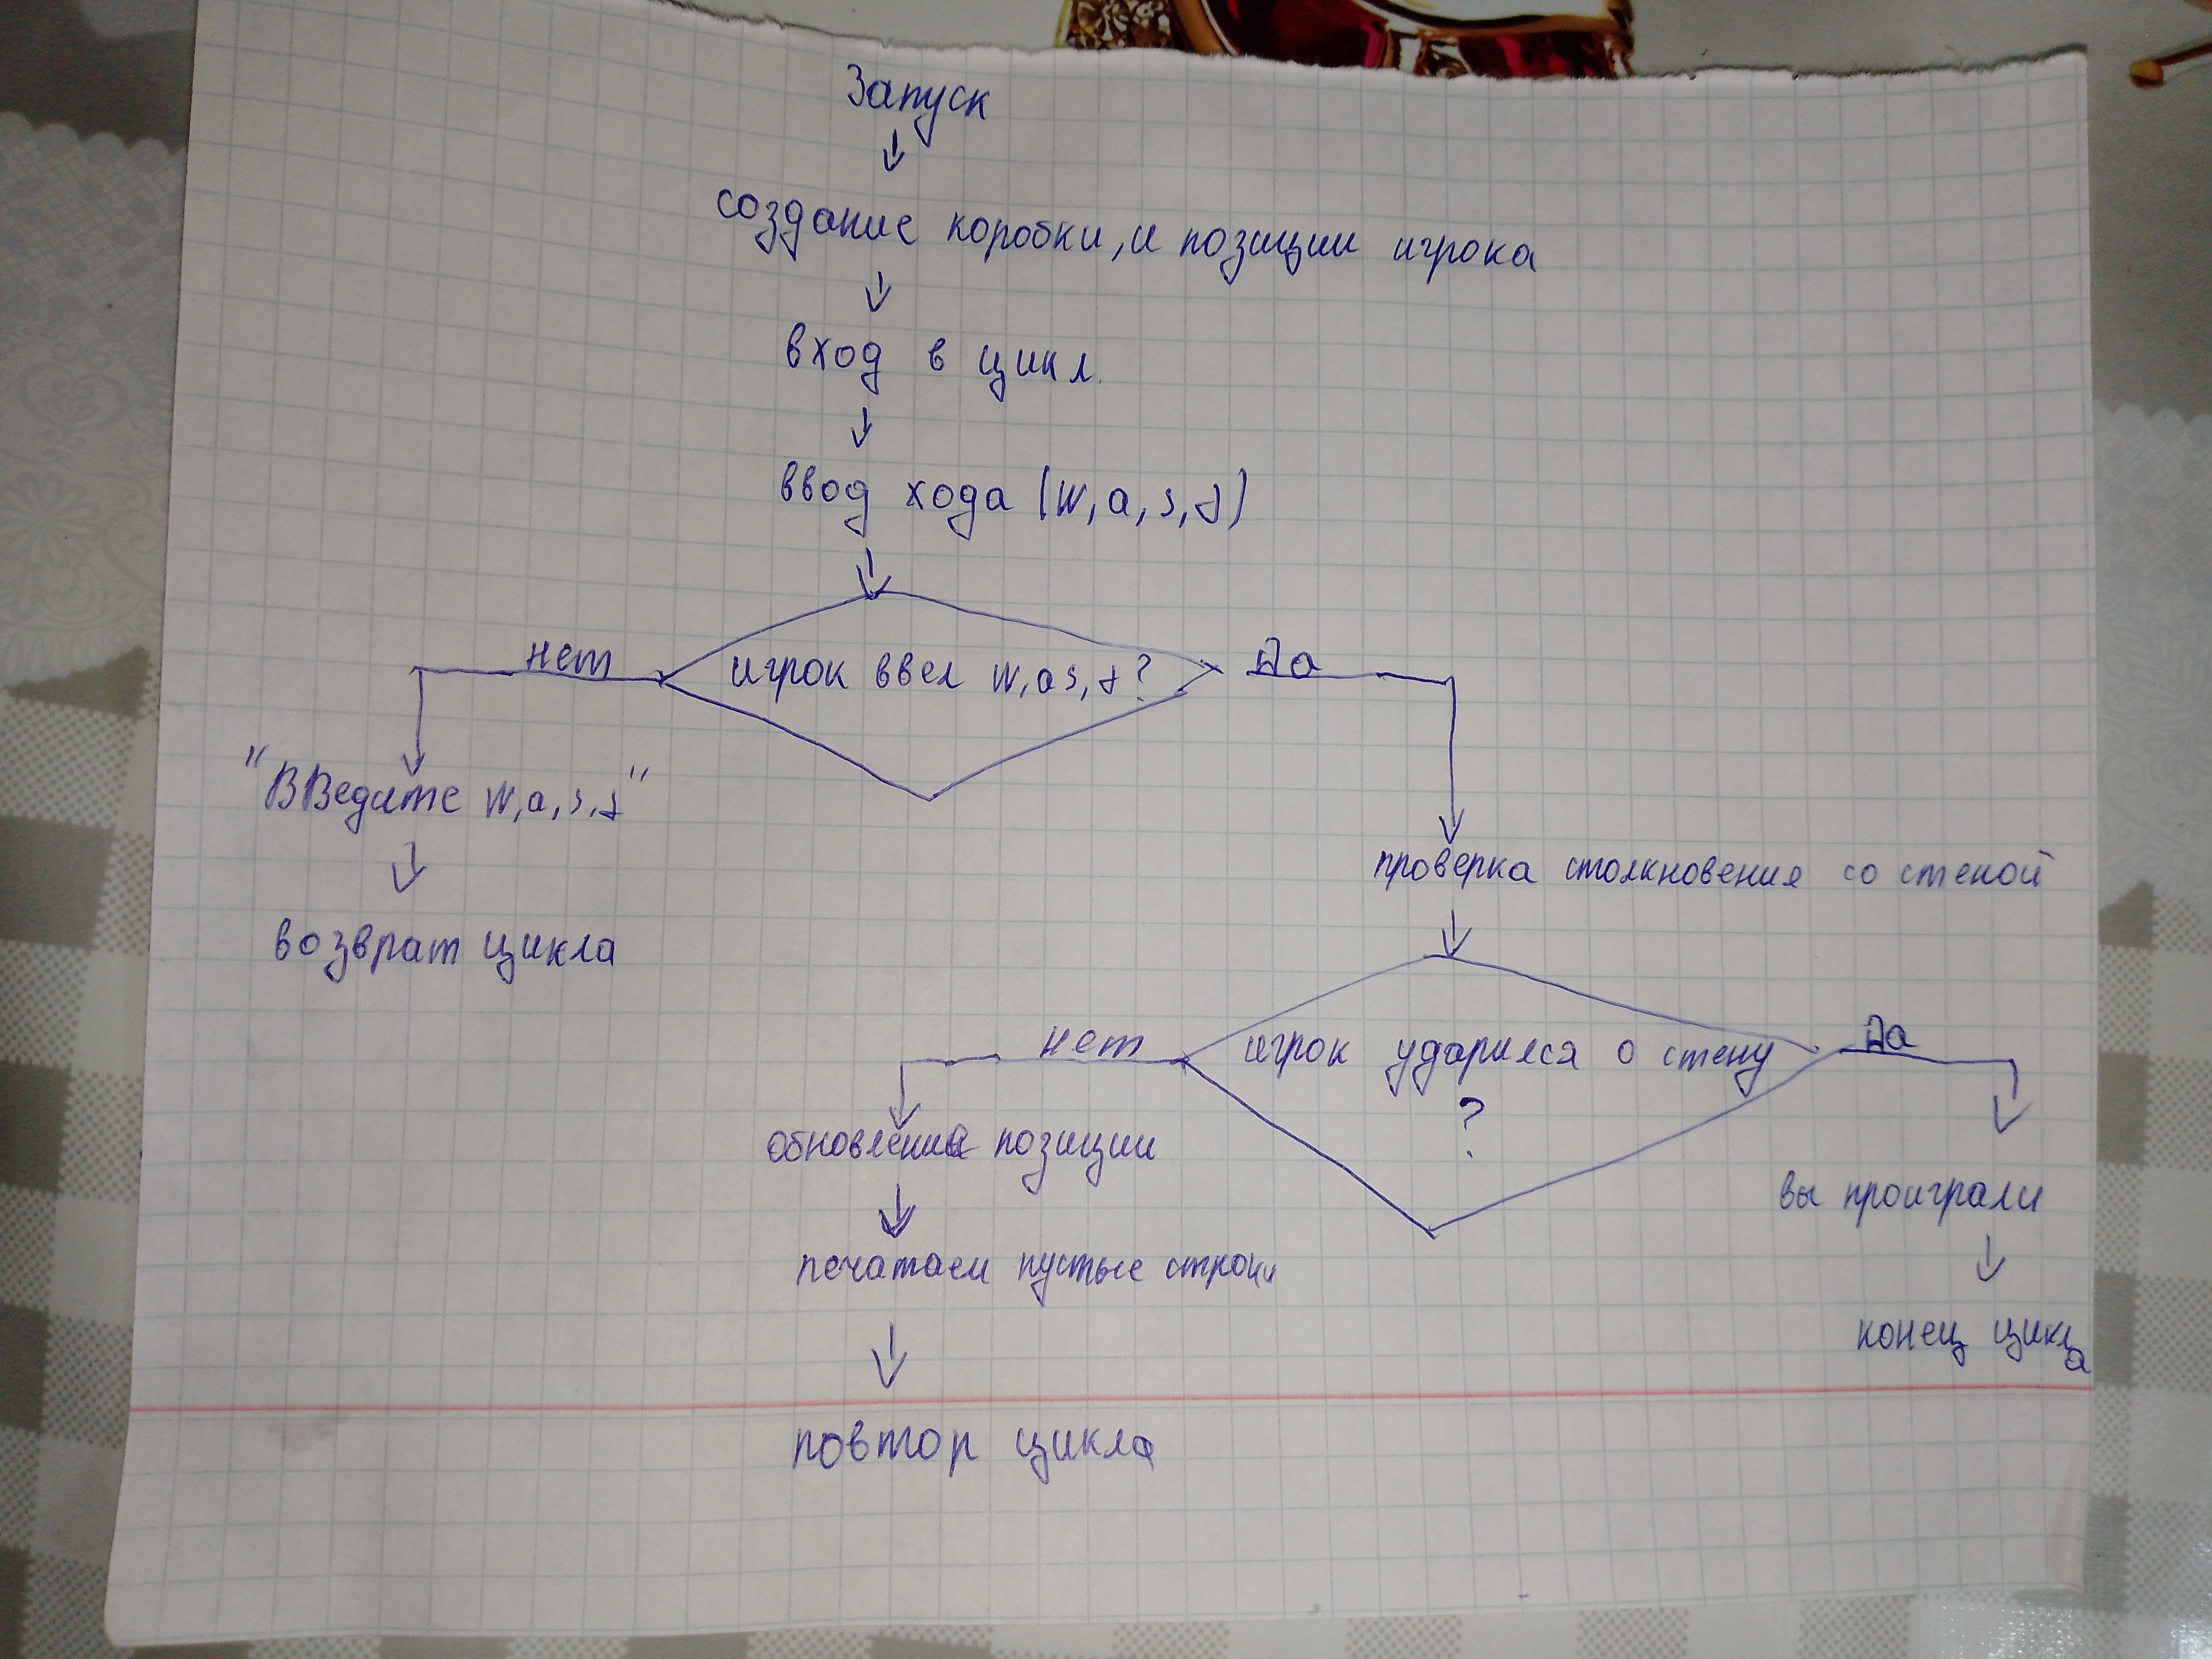 Запуск
создание коробки, и позиции игрока
вход в цикл.
ввод хода (w, a, s, d)
игрок ввел w, a s, d?
нет
Да
"ВВедите w, a, s, d"
возврат цикла
проверка столкновения со стеной
игрок ударился о стену
?
нет
Да
обновление позиции
печатаем пустые строки
повтор цикла
вы проиграли
конец цикла